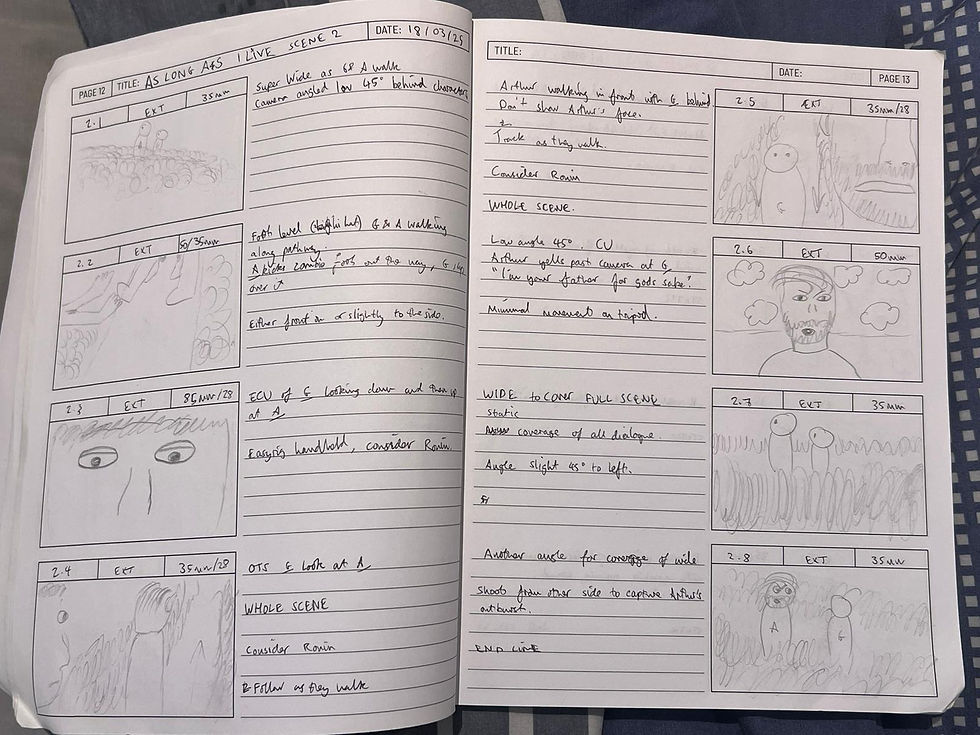 PAGE 12 TITLE: AS LONG AS I LIVE SCENE 2 DATE: 18/03/25
2.1 EXT 35mm
Super Wide as G & A walk
Camera angled low 45° behind characters
2.2 EXT 50/35mm
Foot level G & A walking
along pathway.
A kicks zombie foot out the way, G
over it
Either front on or slightly to the side.
2.3 EXT 85mm/28
ECU of G looking down and then up
at A
Easyrig handheld, consider Ronin.
2.4 EXT 35mm/28
OTS G look at A
WHOLE SCENE
Consider Ronin
Follow as they walk
TITLE: DATE: PAGE 13
Arthur walking in front with G behind
Don't show Arthur's face.
Track as they walk.
Consider Ronin
WHOLE SCENE.
2.5 EXT 35mm/28
G
Low angle 45°. CU
Arthur yells past camera at G
"I'm your father for gods sake".
Minimal movement on tripod.
2.6 EXT 50mm
WIDE to COVER FULL SCENE
static
coverage of all dialogue.
Angle slight 45° to left.
2.7 EXT 35mm
Another angle for coverage of wide
shoots from other side to capture Arthur's
outburst.
END LINE
2.8 EXT 35mm
A G